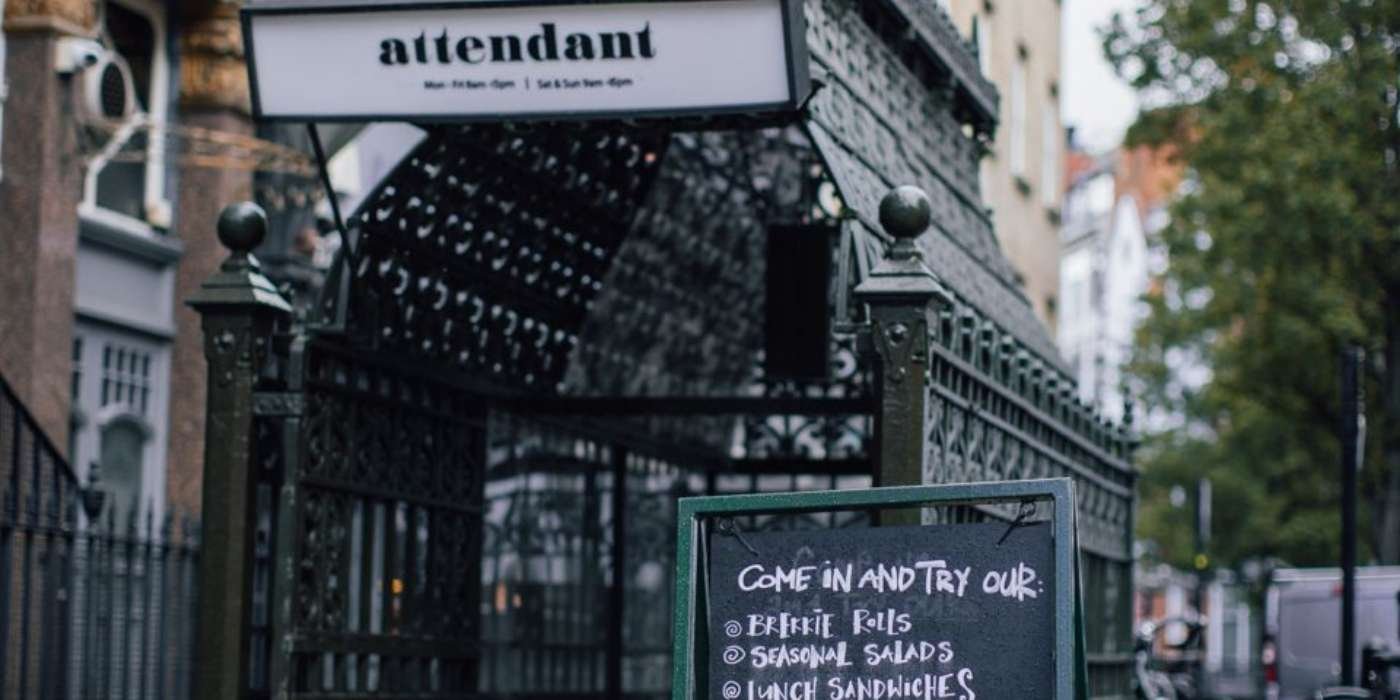 attendant
Mon - Fri 8am -5pm | Sat & Sun 9am -6pm
COME IN AND TRY OUR:
BREKKIE ROLLS
SEASONAL SALADS
LUNCH SANDWICHES